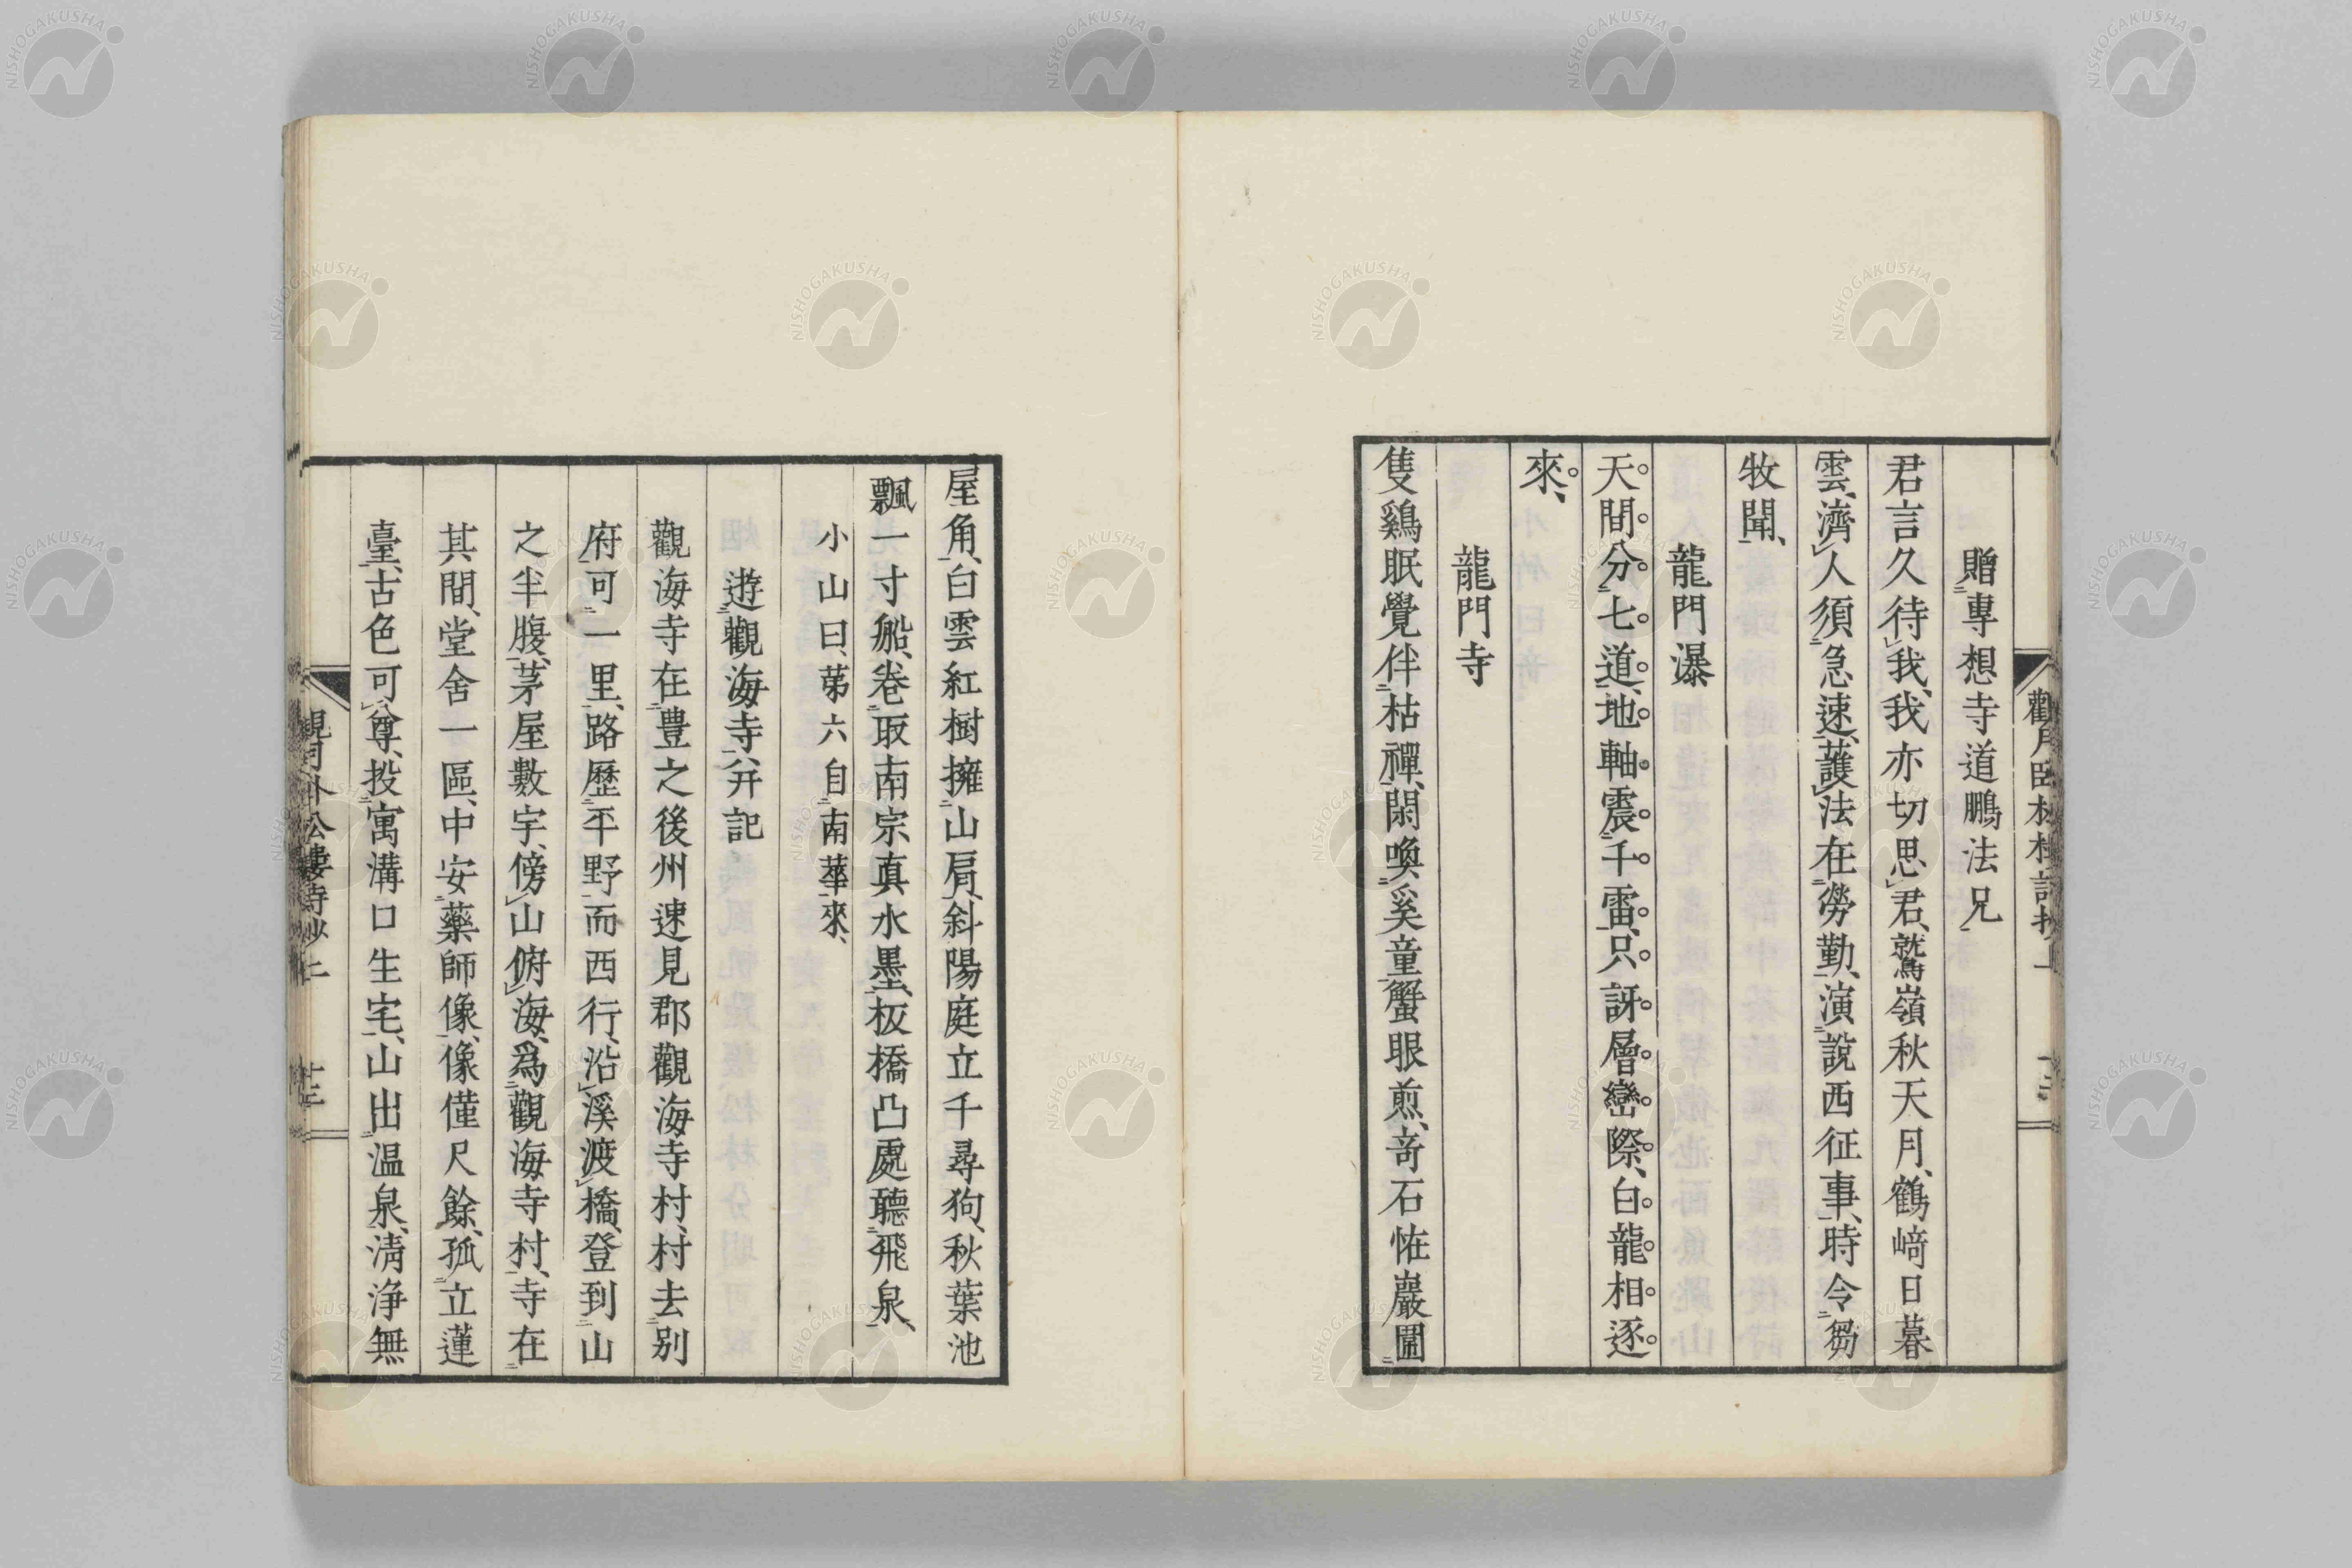 贈專想寺道鵬法兄
君言久待我、我亦切思君、鷲嶺秋天月、鶴﨑日暮
雲、濟人須急速、護法在勞勤、演說西征事、時令芻
牧聞、
龍門瀑
天間分七道、地軸震千雷、只訝層巒際、白龍相逐
來、
龍門寺
隻鷄眠覺伴枯禪、閑喚奚童蟹眼煎、奇石恠巖圍
屋角、白雲紅樹擁山肩、斜陽庭立千尋狗、秋葉池
飄一寸船、卷取南宗真水墨、板橋凸處聽飛泉、
小山曰、第六自南華來、
遊觀海寺、并記
觀海寺在豊之後州速見郡觀海寺村、村去別
府可一里、路歷平野而西行、沿溪渡橋、登到山
之半腹、茅屋數宇、傍山俯海、爲觀海寺村、寺在
其間、堂舍一區、中安藥師像、像僅尺餘、孤立蓮
臺、古色可尊、投寓溝口生宅、山出温泉、清浄無